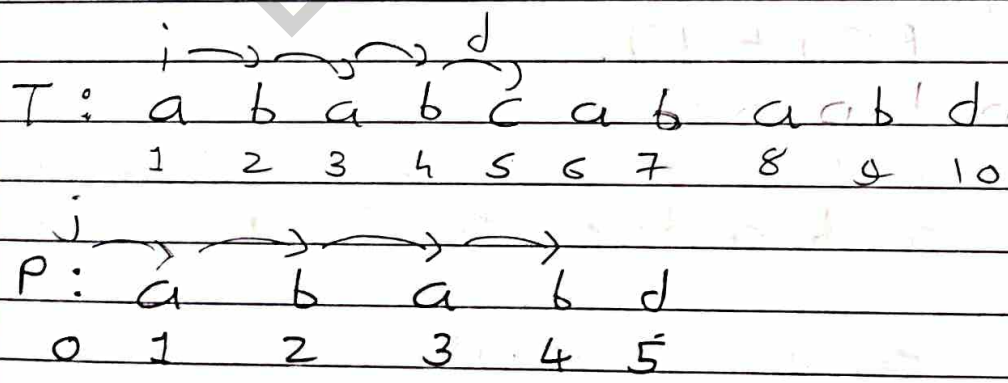 i d
T : a b a b c a b a b d
1 2 3 4 5 6 7 8 9 10
j
P : a b a b d
0 1 2 3 4 5